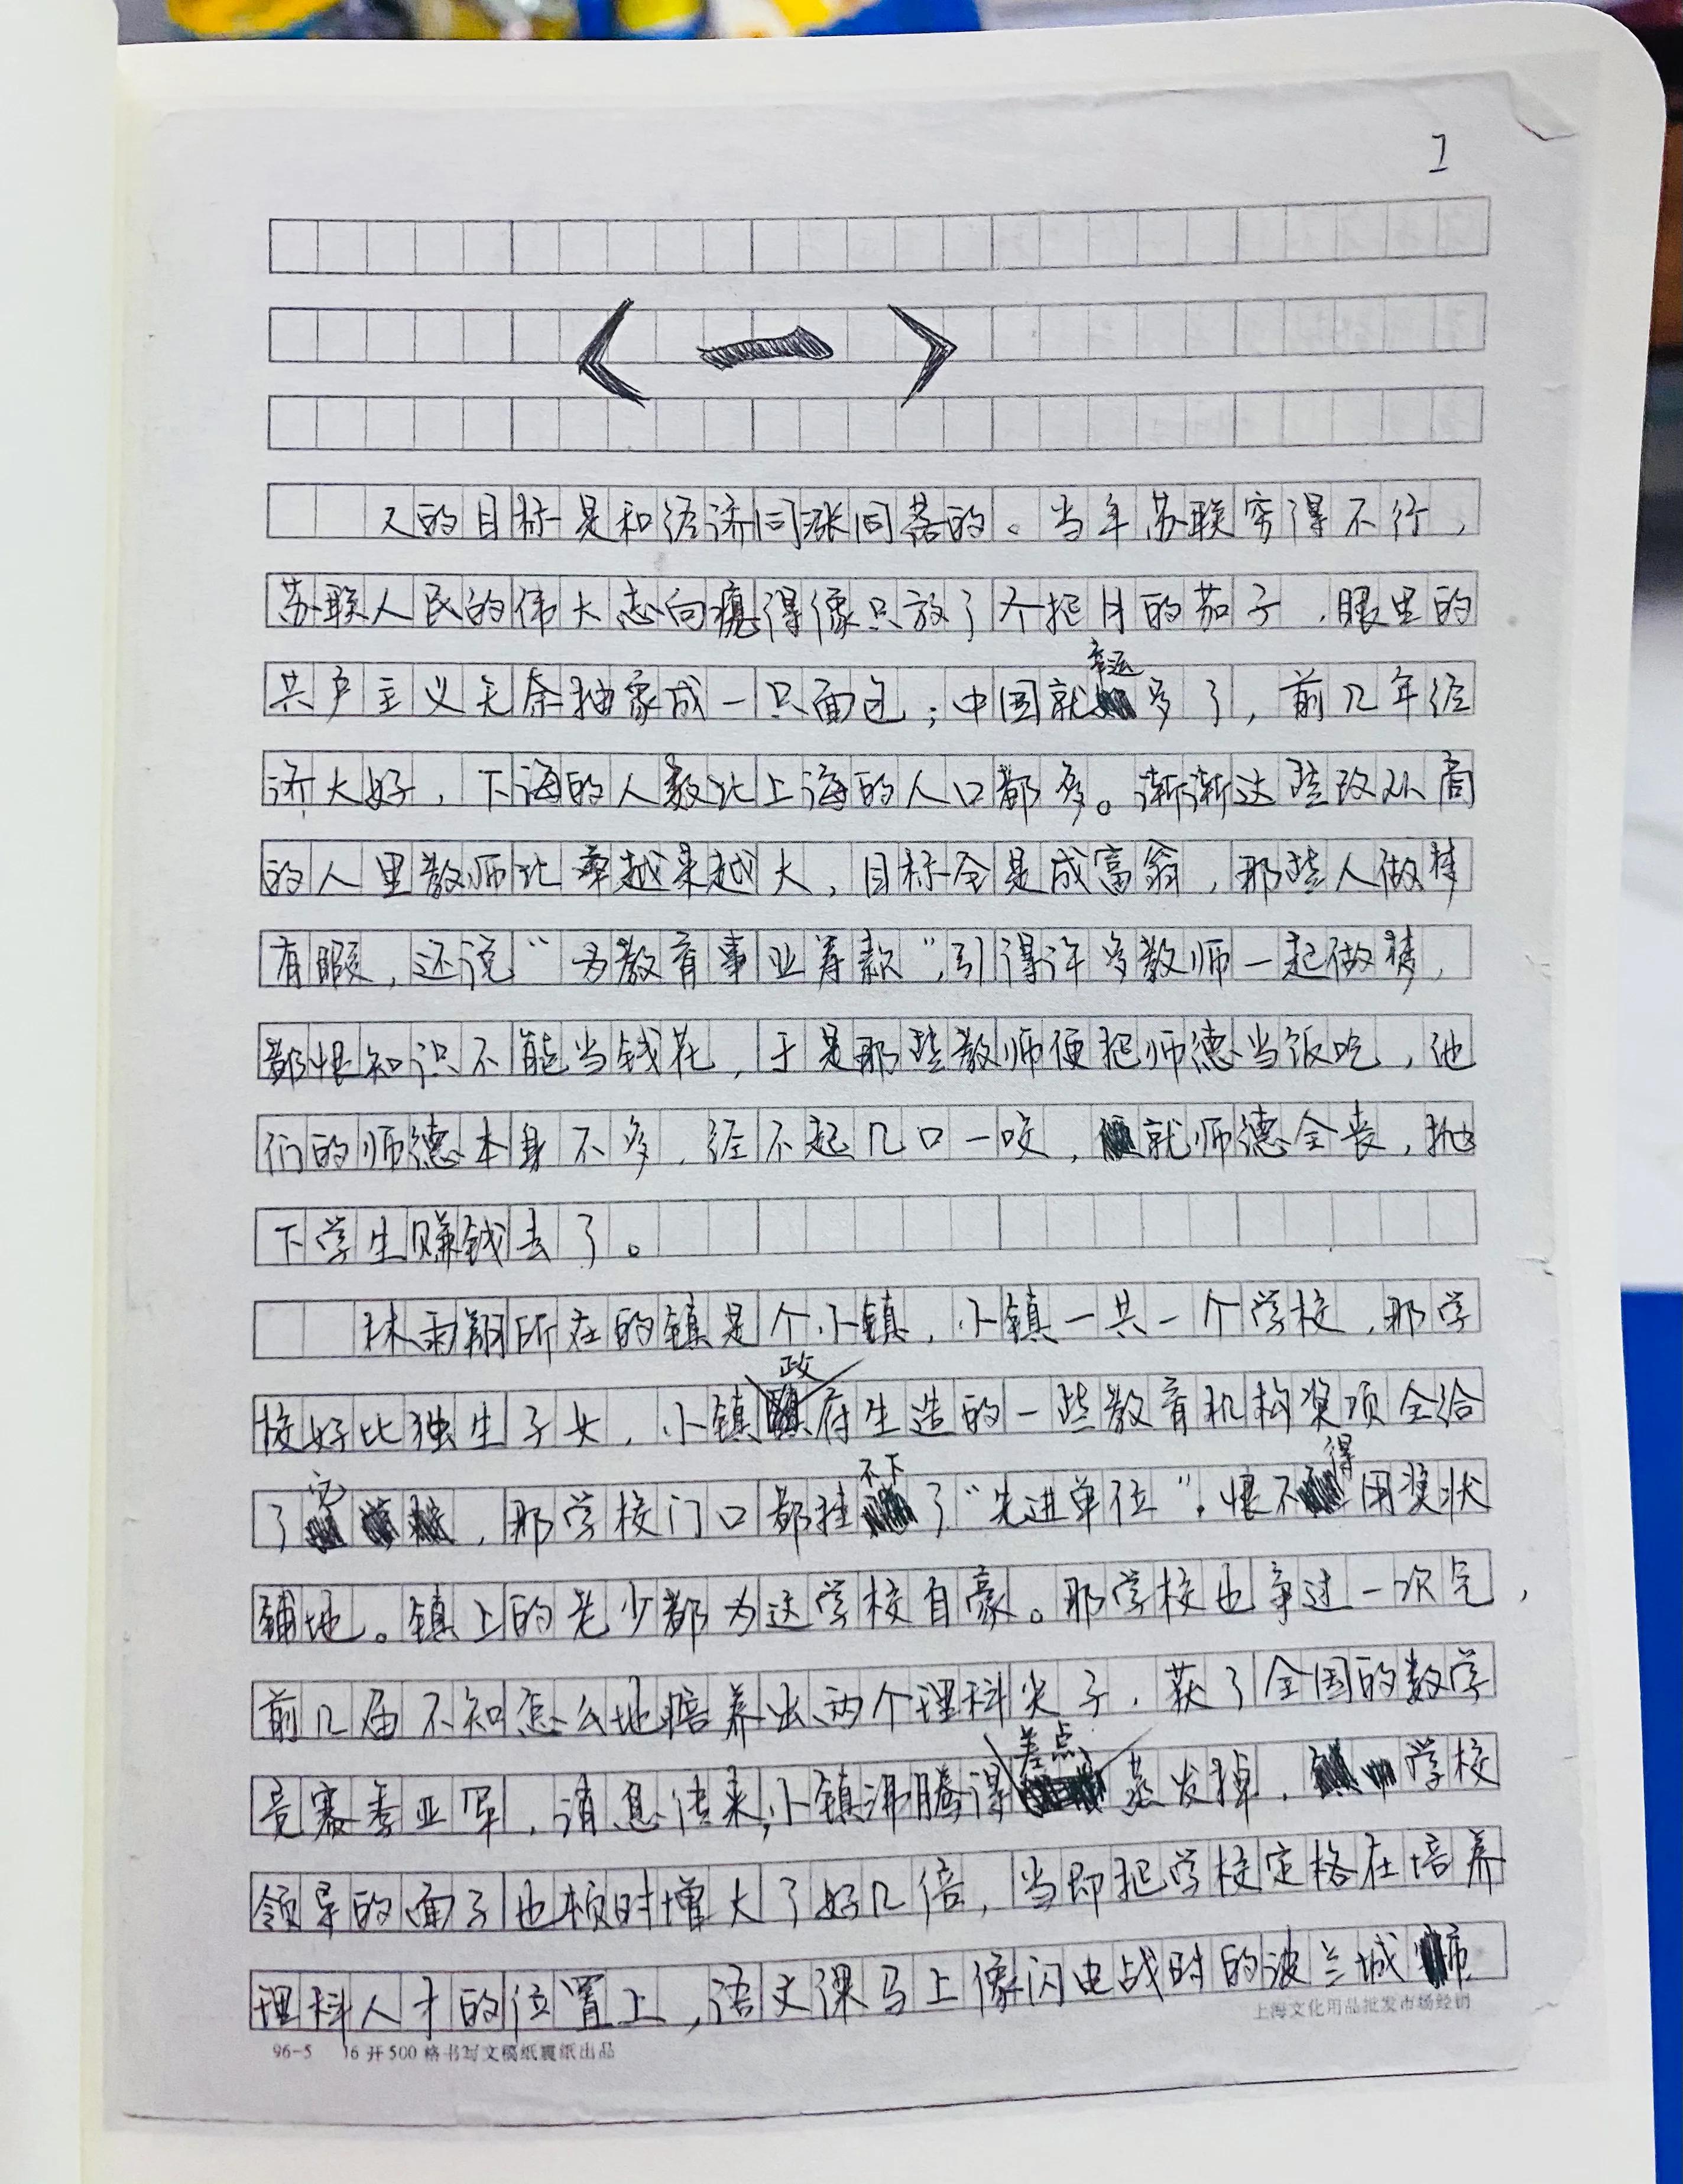 1
〈一〉
人的目标是和经济同涨同落的。当年苏联穷得不行，
苏联人民的伟大志向瘪得像只放了个把月的茄子，眼里的
共产主义无奈抽象成一只面包；中国就幸运多了，前几年经
济大好，下海的人数比上海的人口都多。渐渐这些改从商
的人里教师比率越来越大，目标全是成富翁，那些人做梦
有暇，还说“为教育事业筹款”，引得许多教师一起做梦，
都恨知识不能当钱花，于是那些教师便把师德当饭吃，他
们的师德本身不多，经不起几口一咬，就师德全丧，抛
下学生赚钱去了。
林雨翔所在的镇是个小镇，小镇一共一个学校，那学
校好比独生子女，小镇政府生造的一些教育机构奖项全给
了它，那学校门口都挂不下了“先进单位”，恨不得用奖状
铺地。镇上的老少都为这学校自豪。那学校也争过一次气，
前几届不知怎么地培养出两个理科尖子，获了全国的数学
竞赛季亚军，消息传来，小镇沸腾得差点蒸发掉，学校
领导的面子也顿时增大了好几倍，当即把学校定格在培养
理科人才的位置上，语文课马上像闪电战时的波兰城市
96-5 16开500格书写文稿纸襄纸出品
上海文化用品批发市场经销